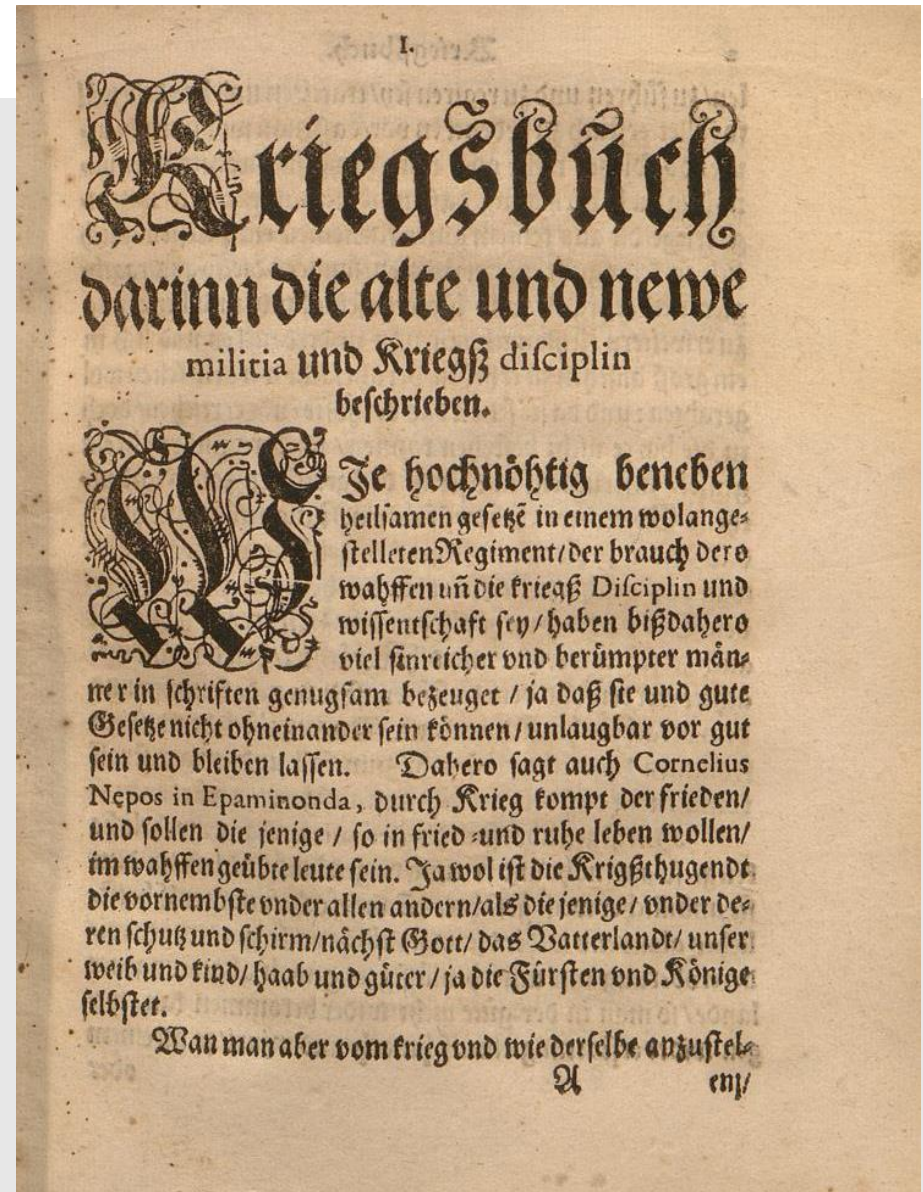 I.
Kriegsbůch
darinn die alte und newe
militia und Kriegß disciplin
beschrieben.
WJe hochnöhtig beneben
heilsamen gesetzẽ in einem wolange⸗
stelleten Regiment/der brauch dero
wahffen uñ die kriegß Disciplin und
wissentschaft sey/haben bißdahero
viel sinreicher vnd berümpter män⸗
ner in schriften genugsam bezeuget / ja daß sie und gute
Gesetze nicht ohneinander sein können/ unlaugbar vor gut
sein und bleiben lassen. Dahero sagt auch Cornelius
Nępos in Epaminonda, durch Krieg kompt der frieden/
und sollen die jenige / so in fried⸗und ruhe leben wollen/
im wahffen geübte leute sein. Ja wol ist die Krigßthugendt
die vornembste vnder allen andern/als die jenige/ vnder de⸗
ren schutz und schirm/nächst Gott/ das Vatterlandt/ unser
weib und kind/ haab und güter / ja die Fürsten vnd Könige
selbstet.
Wan man aber vom krieg vnd wie derselbe anzustel⸗
A en/